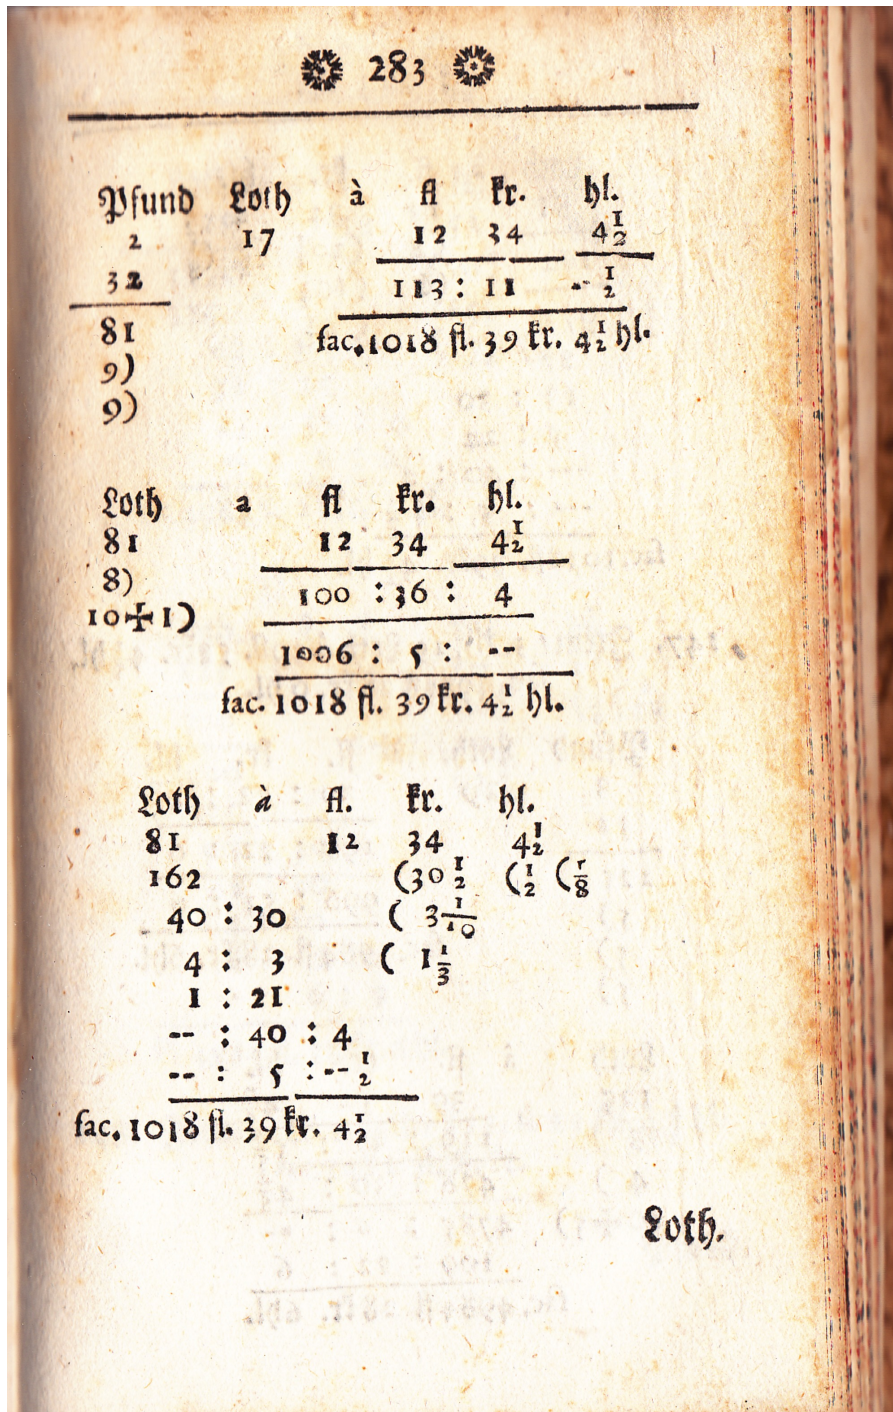 283
Pfund Loth à fl kr. hl.
2 17 12 34 4½
32 113 : 11 -- ½
81 fac. 1018 fl. 39 kr. 4½ hl.
9)
9)
Loth a fl kr. hl.
81 12 34 4½
8) 100 : 36 : 4
10 ✠ 1)
1006 : 5 : --
fac. 1018 fl. 39 kr. 4½ hl.
Loth à fl. kr. hl.
81 12 34 4½
162 (30½ (½ (⅛
40 : 30 ( 3⅒
4 : 3 ( 1⅓
1 : 21
-- : 40 : 4
-- : 5 : -- ½
fac. 1018 fl. 39 kr. 4½
Loth.